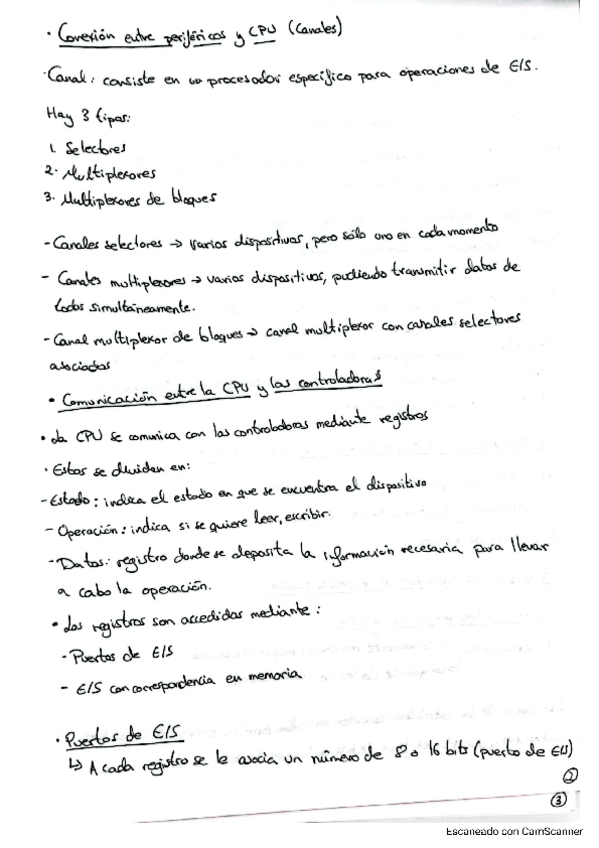 · Conexión entre periféricos y CPU (Canales)
· Canal: consiste en un procesador específico para operaciones de E/S.
Hay 3 tipos:
1. Selectores
2. Multiplexores
3. Multiplexores de bloques
- Canales selectores → varios dispositivos, pero sólo uno en cada momento
- Canales multiplexores → varios dispositivos, pudiendo transmitir datos de
todos simultáneamente.
- Canal multiplexor de bloques → canal multiplexor con canales selectores
asociados
• Comunicación entre la CPU y las controladoras
• La CPU se comunica con las controladoras mediante registros
· Estos se dividen en:
- Estado: indica el estado en que se encuentra el dispositivo
- Operación: indica si se quiere leer, escribir.
- Datos: registro donde se deposita la información necesaria para llevar
a cabo la operación.
• Los registros son accedidos mediante:
- Puertos de E/S
- E/S con correspondencia en memoria
· Puertos de E/S
↳ A cada registro se le asocia un número de 8 o 16 bits (puerto de E/S)
2
3
Escaneado con CamScanner